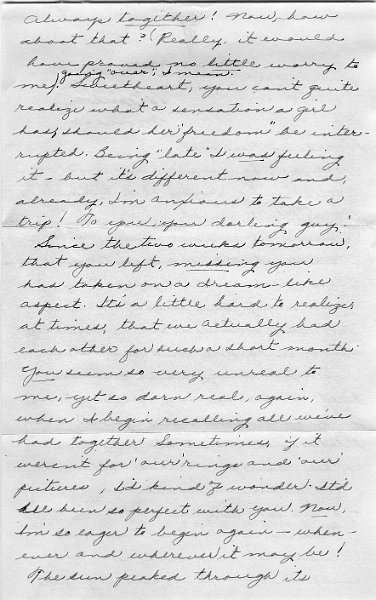 always together! Now, how
about that? (Really, it would
have proved no little worry to
going "over", I mean.
me). Sweetheart, you can't quite
realize what a sensation a girl
has, should her "freedom" be inter-
rupted. Being "late" I was feeling
it - but it's different now and,
already, I'm anxious to take a
trip! To you, you darling guy!
Since the two weeks tomorrow,
that you left, missing you
has taken on a dream-like
aspect. It's a little hard to realize,
at times, that we actually had
each other for such a short month.
You seem so very unreal to
me, yet so darn real, again,
when I begin recalling all we've
had together. Sometimes, if it
weren't for 'our' rings and 'our'
pictures, I'd kind of wonder. It'd
all been so perfect with you. Now,
I'm so eager to begin again - when-
ever and wherever it may be!
The sun peaked through its